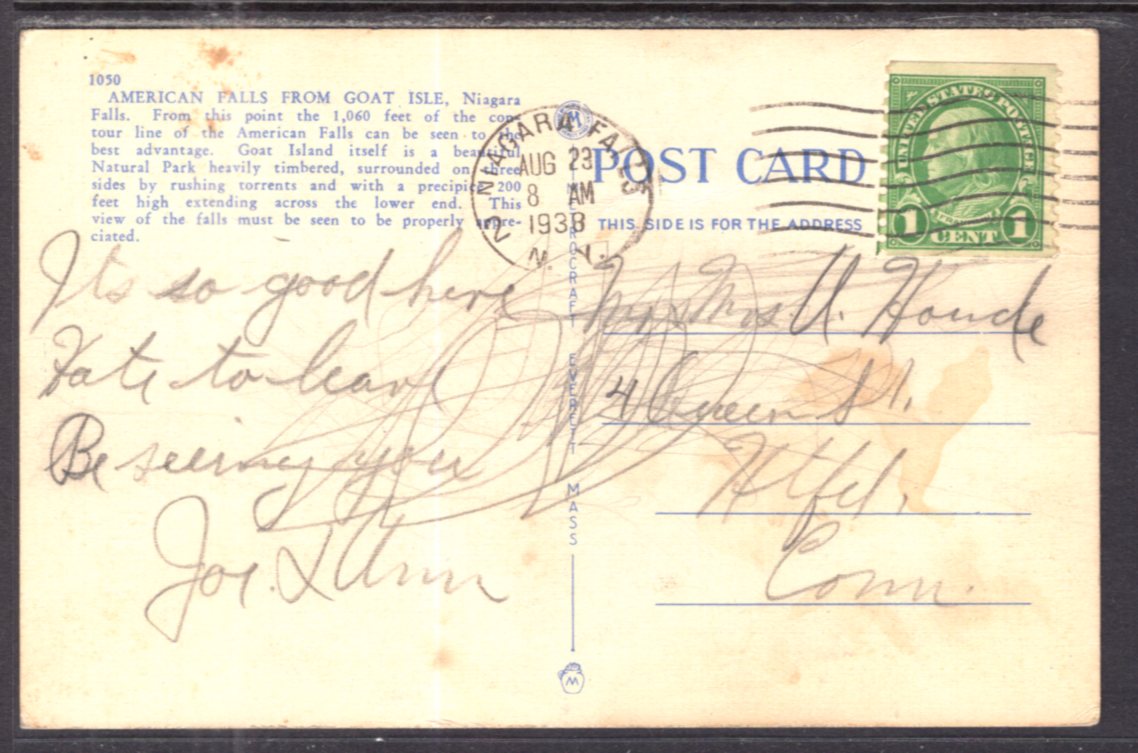 1050
AMERICAN FALLS FROM GOAT ISLE, Niagara
Falls. From this point the 1,060 feet of the con-
tour line of the American Falls can be seen to the
best advantage. Goat Island itself is a beautiful
Natural Park heavily timbered, surrounded on three
sides by rushing torrents and with a precipice 200
feet high extending across the lower end. This
view of the falls must be seen to be properly appre-
ciated.
NIAGARA FALLS
2
AUG 23
8 AM
1938
N. Y.
UNITED STATES POSTAGE
FRANKLIN
1 CENT 1
POST CARD
THIS SIDE IS FOR THE ADDRESS
M
Its so good here
Hate to leave
Be seeing you
Joe. & Ann
EVERETT MASS
Mr & Mrs. U. Houde
4 Queen St.
Htfd.
Conn.
M